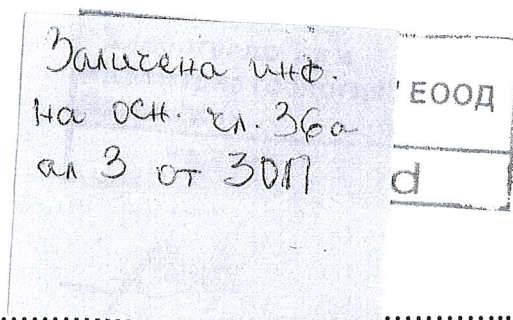 Заличена инф.
на осн. чл. 36а
ал 3 от ЗОП
' ЕООД
d